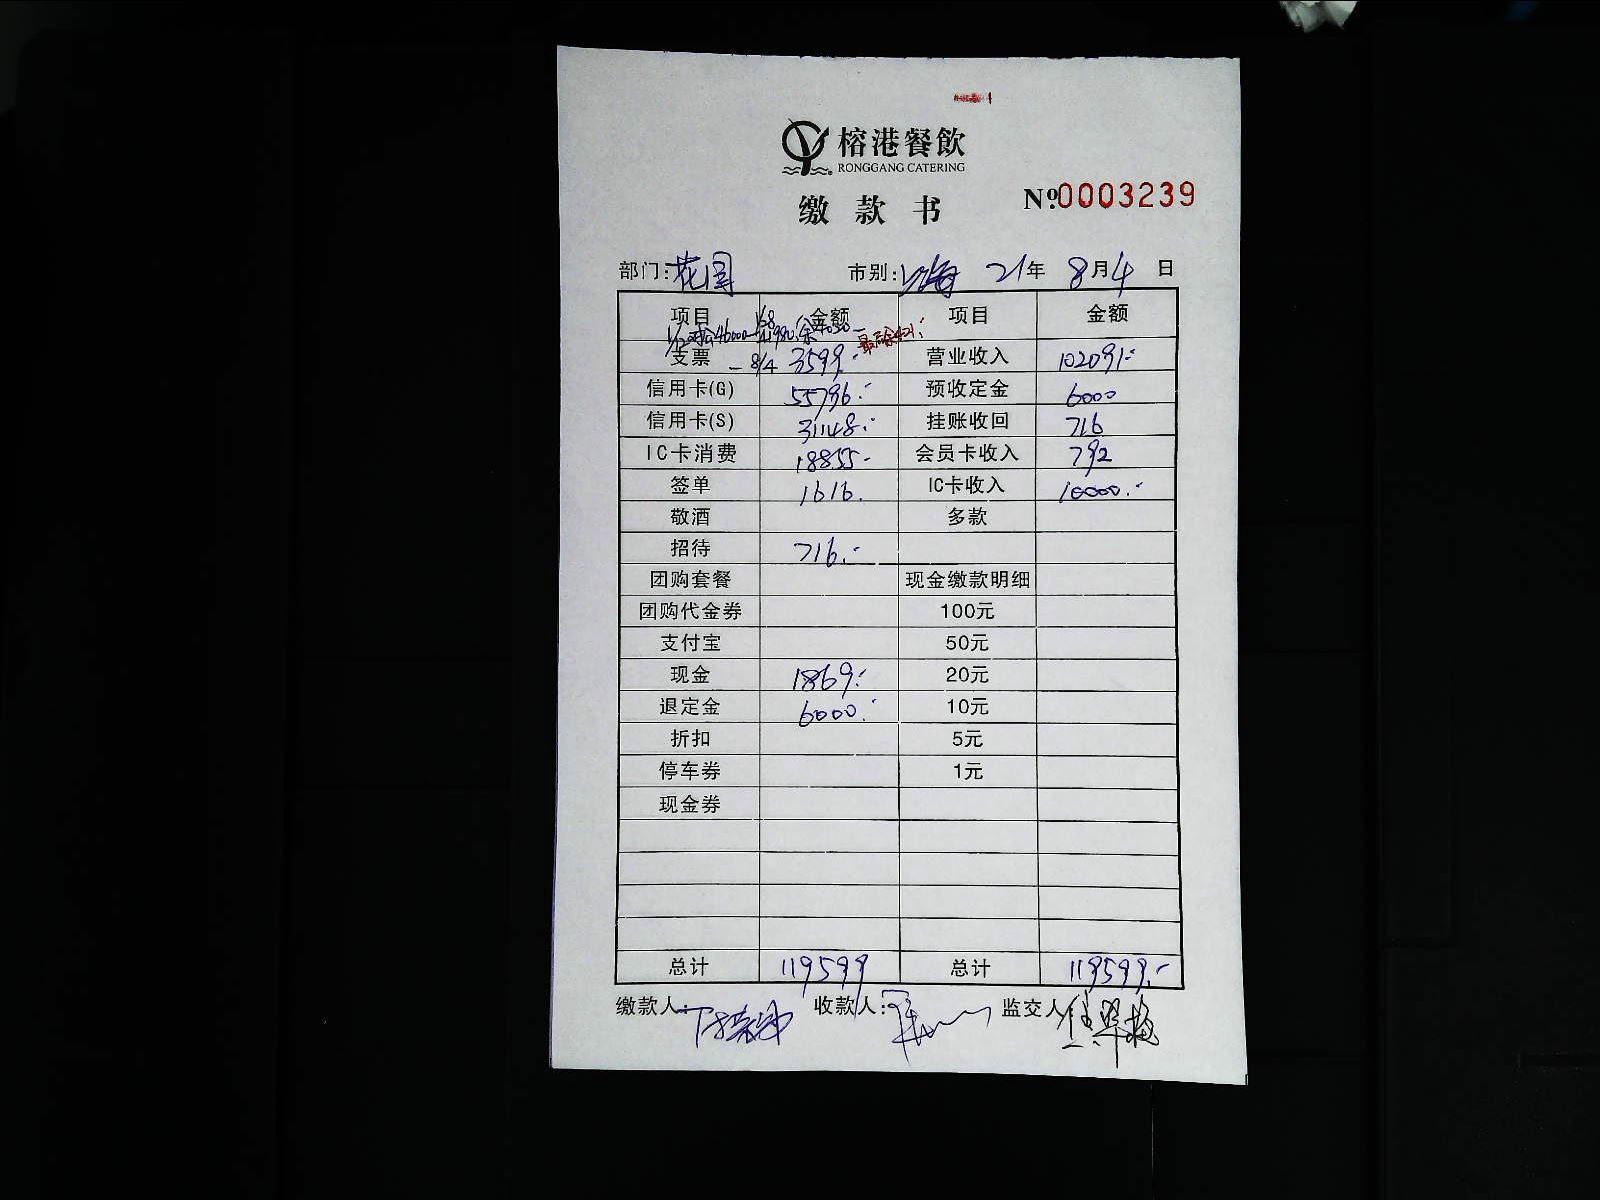 榕港餐飲
RONGGANG CATERING
缴款书
№:0003239
部门:花园 市别:上海 21年 8月4日
项目 金额 项目 金额
支票 8/4 3599.- 营业收入 102091.-
信用卡(G) 55796.- 预收定金 6000
信用卡(S) 31148.- 挂账收回 716
IC卡消费 18855.- 会员卡收入 792
签单 1616. IC卡收入 10000.-
敬酒 多款
招待 716.-
团购套餐 现金缴款明细
团购代金券 100元
支付宝 50元
现金 1869.- 20元
退定金 6000.- 10元
折扣 5元
停车券 1元
现金券
总计 119599 总计 119599.-
缴款人: 收款人: 监交人